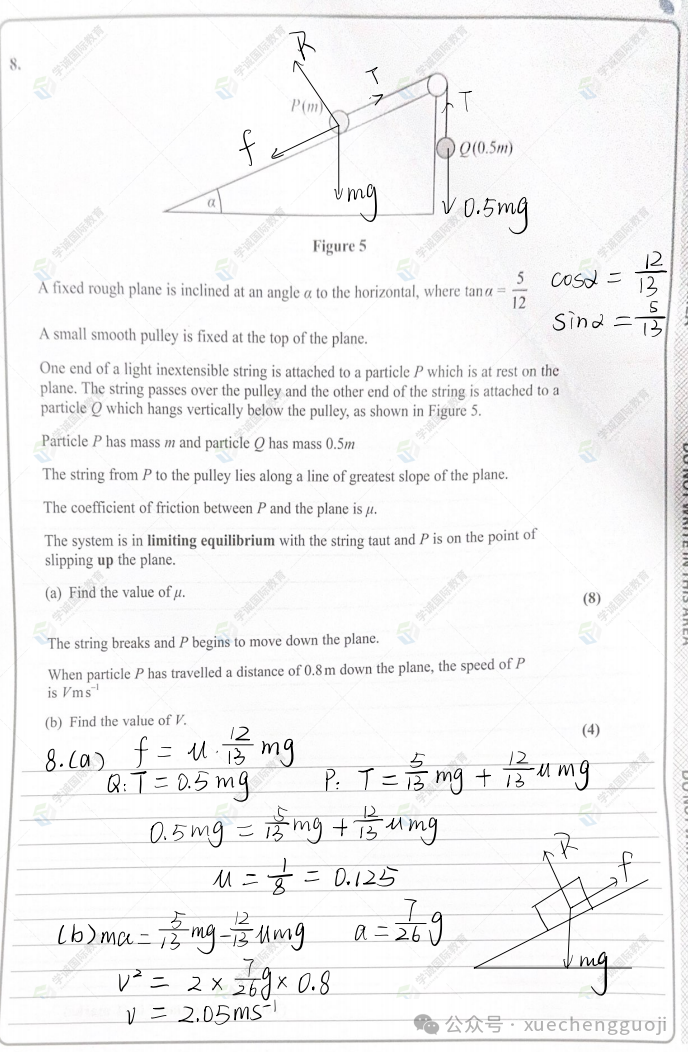 8.
R
T
P(m)
T
f
Q(0.5m)
α
mg
0.5mg
Figure 5
A fixed rough plane is inclined at an angle α to the horizontal, where tan α = 5/12
cosα = 12/13
sinα = 5/13
A small smooth pulley is fixed at the top of the plane.
One end of a light inextensible string is attached to a particle P which is at rest on the
plane. The string passes over the pulley and the other end of the string is attached to a
particle Q which hangs vertically below the pulley, as shown in Figure 5.
Particle P has mass m and particle Q has mass 0.5m
The string from P to the pulley lies along a line of greatest slope of the plane.
The coefficient of friction between P and the plane is μ.
The system is in limiting equilibrium with the string taut and P is on the point of
slipping up the plane.
(a) Find the value of μ.
(8)
The string breaks and P begins to move down the plane.
When particle P has travelled a distance of 0.8 m down the plane, the speed of P
is V m s⁻¹
(b) Find the value of V.
(4)
8.(a) f = μ · 12/13 mg
Q: T = 0.5mg P: T = 5/13 mg + 12/13 μmg
0.5mg = 5/13 mg + 12/13 μmg
μ = 1/8 = 0.125
R
f
mg
(b) ma = 5/13 mg - 12/13 μmg a = 7/26 g
V² = 2 × 7/26 g × 0.8
V = 2.05ms⁻¹
公众号 · xuechengguoji
学诚国际教育
DO NOT WRITE IN THIS AREA